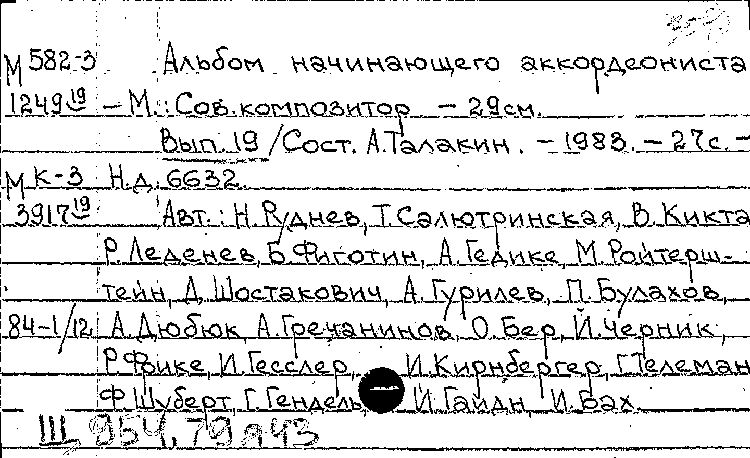 М 582-3 Альбом начинающего аккордеониста
1249 19 – М.: Сов. композитор – 29см.
Вып. 19 / Сост. А.Талакин. – 1983. – 27с. –
М К-3 Н.д. 6632.
3917 19 Авт.: Н.Руднев, Т.Салютринская, В.Кикта
Р.Леденев, Б.Фиготин, А.Гедике, М.Ройтерш-
тейн, Д.Шостакович, А.Гурилев, П.Булахов,
84-1/12 А.Дюбюк, А.Гречанинов, О.Бер, Й.Черник,
Р.Фрике, И.Гесслер, И.Кирнбергер, Г.Телеман
Ф.Шуберт, Г.Гендель, Й.Гайдн, И.Бах.
Щ 954.79я43